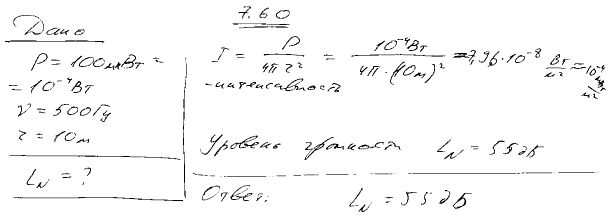 7.60
Дано
P = 100мкВт =
= 10⁻⁴Вт
ν = 500Гц
r = 10м
L_N = ?
I = P / 4πr² = 10⁻⁴Вт / 4π·(10м)² = 7,96·10⁻⁸ Вт/м² =
- интенсивность
Уровень громкости L_N = 55дБ
Ответ: L_N = 55дБ